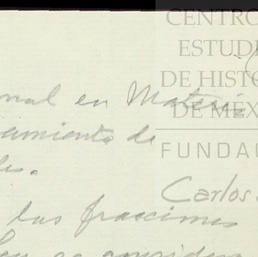 CENTRO
ESTUDI
DE HISTO
DE MÉX
FUNDAC
Carlos
onal en Materia
amiento de
es.
las fracciones